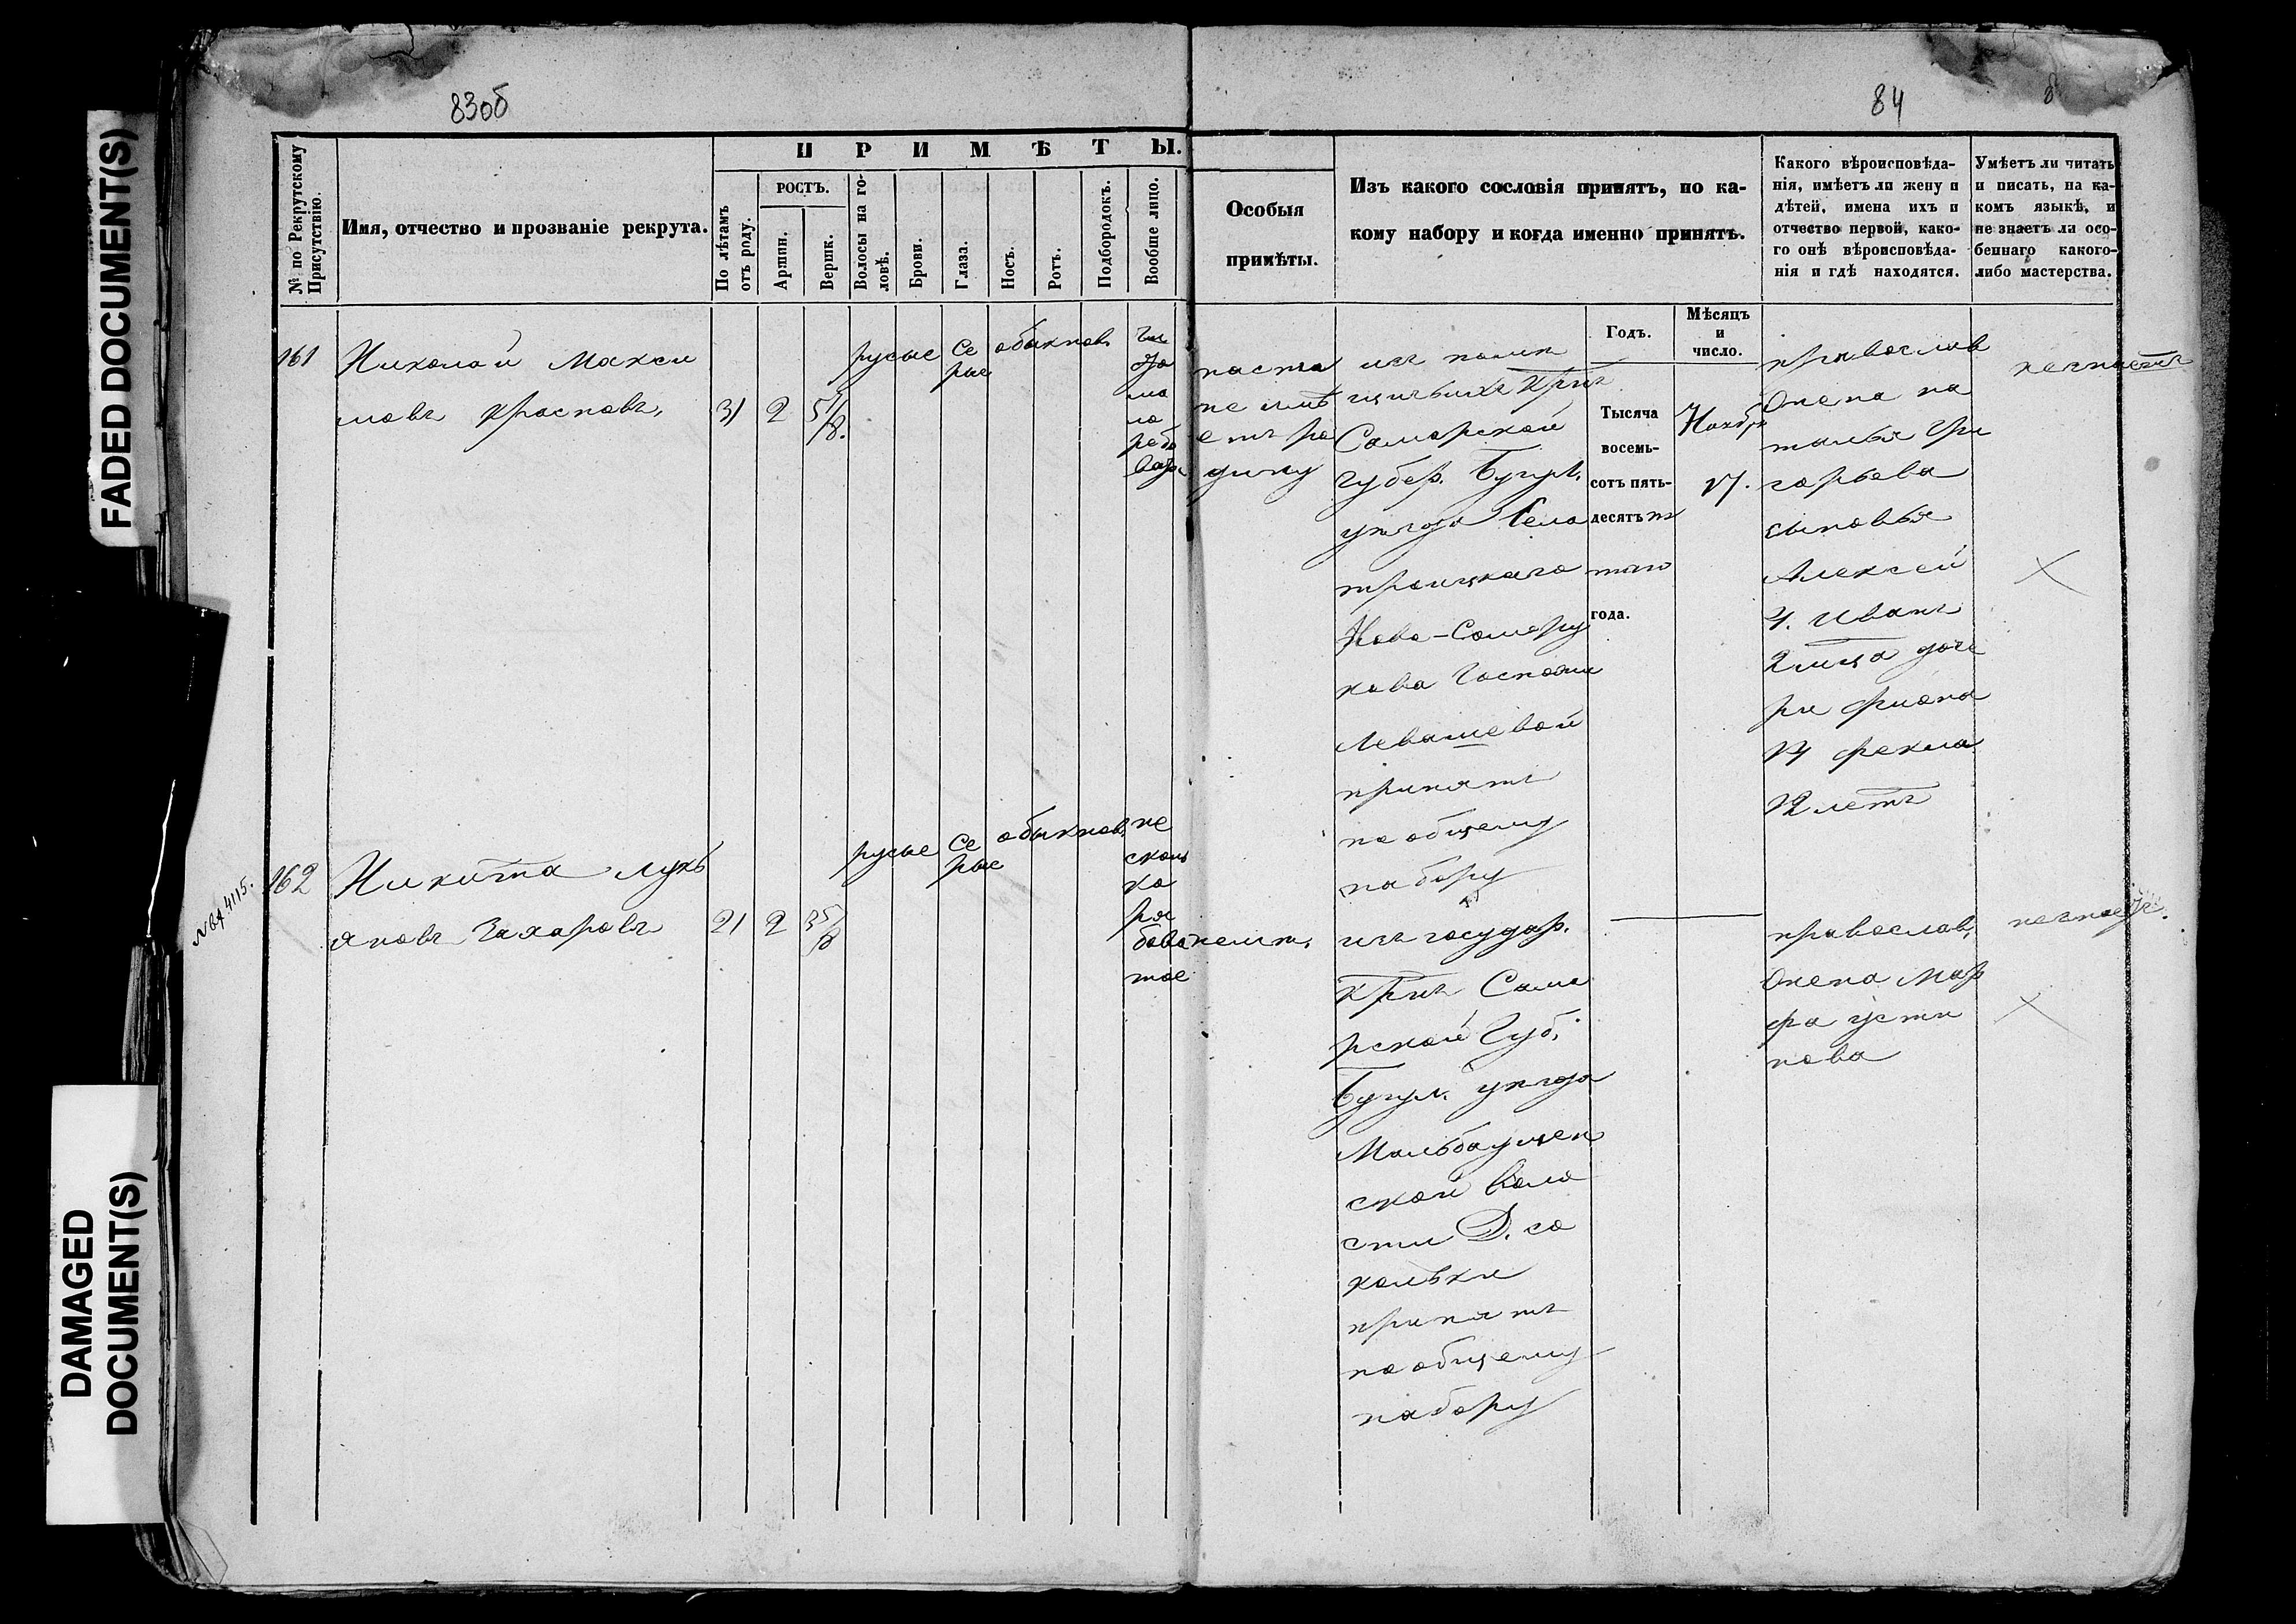 FADED DOCUMENT(S)
DAMAGED
DOCUMENT(S)
83об
84
8
№ по Рекрутскому
Присутствію.
Имя, отчество и прозваніе рекрута.
ПРИМѢТЫ.
По лѣтамъ
отъ роду.
РОСТЪ.
Аршин.
Вершк.
Волосы на го-
ловѣ.
Брови.
Глаза.
Носъ.
Ротъ.
Подбородокъ.
Вообще лицо.
Особыя
примѣты.
Изъ какого сословія принятъ, по ка-
кому набору и когда именно принятъ.
Годъ.
Мѣсяцъ
и
число.
Какого вѣроисповѣда-
нія, имѣетъ ли жену и
дѣтей, имена ихъ и
отчество первой, како-
го онѣ вѣроисповѣда-
нія и гдѣ находятся.
Умѣетъ ли читать
и писать, на ка-
комъ языкѣ, и
не знаетъ ли осо-
беннаго какого-
либо мастерства.
161
Николай Макси
мовъ Красновъ,
31
2
5 1/8.
русые
Се
рые
обыкнов
ма
ло
рябо
не имѣ
етъ ро
дину
изъ помѣ
щичьихъ крнъ
Самарской
губер. Бугул.
уѣзда Села
троицкаго
Ново-Самару
кова Госпожи
Левашевой
принятъ
по общему
набору
Тысяча
восемь-
сотъ пять-
десятъ пя
таго
года.
Ноябр
17.
православ
жена на
талья Гри
горьева
сыновья
Алексей
4. Иванъ
2 мца доче
ри фиона
14 фекла
12 летъ
незнаетъ
№ 4115.
162
Никита Лукь
яновъ Захаровъ
21
2
3 5/8
русые
Се
рые
обыкнов.
не
сколь
ко
ря
бова
тое
неимт.
изъ государ.
крнъ Сама
рской Губ.
Бугул. уѣзда
Мальбаушен
ской воло
сти Д. со
кольки
принятъ
по общему
набору
православ.
жена Мар
фа усти
нова
незнаетъ.